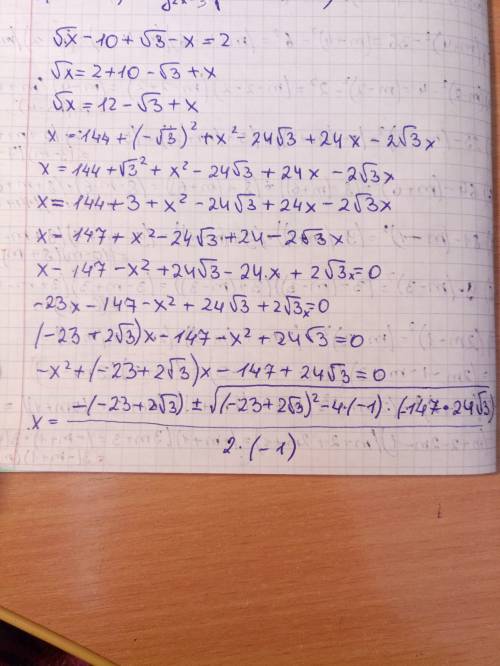 √x - 10 + √3 - x = 2
√x = 2 + 10 - √3 + x
√x = 12 - √3 + x
x = 144 + (-√3)² + x² - 24√3 + 24x - 2√3x
x = 144 + √3² + x² - 24√3 + 24x - 2√3x
x = 144 + 3 + x² - 24√3 + 24x - 2√3x
x - 147 + x² - 24√3 + 24 - 2√3x
x - 147 - x² + 24√3 - 24x + 2√3x = 0
-23x - 147 - x² + 24√3 + 2√3x = 0
(-23 + 2√3)x - 147 - x² + 24√3 = 0
-x² + (-23 + 2√3)x - 147 + 24√3 = 0
x = (-(-23 + 2√3) ± √((-23 + 2√3)² - 4·(-1)·(-147·24√3))) / (2·(-1))